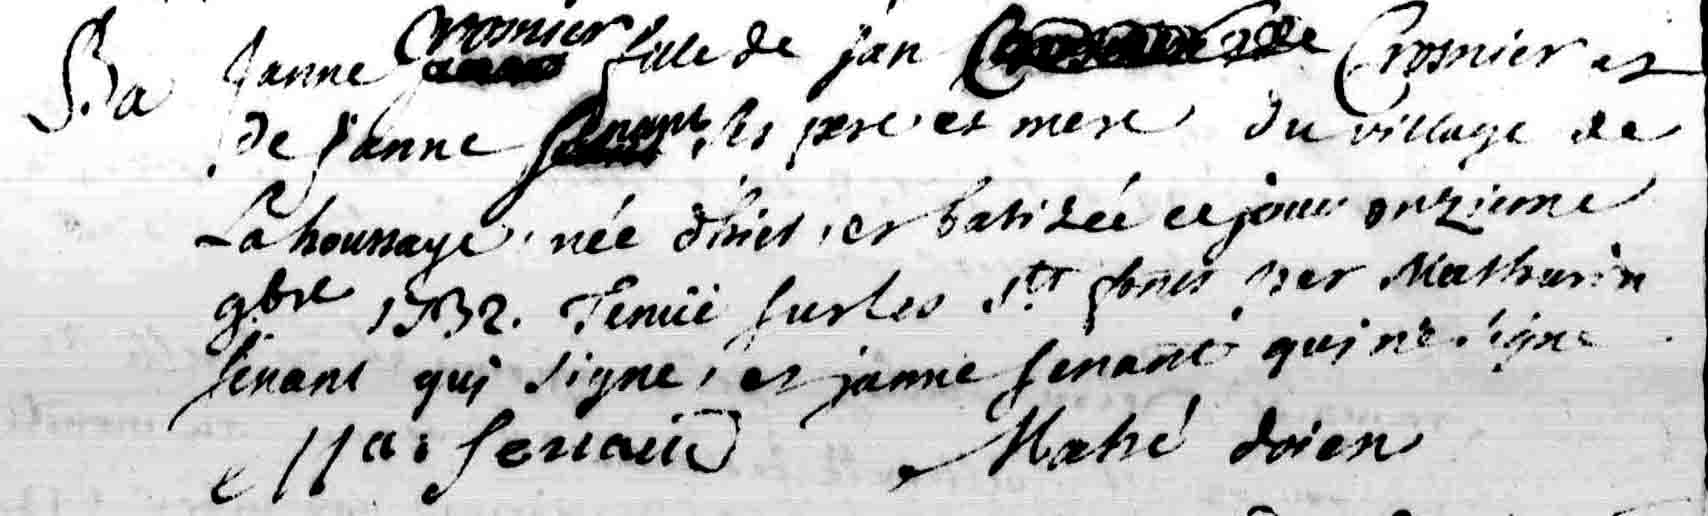 Ba Janne Crosnier fille de jan Crosnier et
de Janne senant ses pere et mere du village de
La houssaye, née d'hier, et batizée ce jour onzieme
9bre 1732. Tenüe sur les sts fonts par Mathurin
senant qui signe, et janne senant qui ne signe
Ma: senant Mahé doien